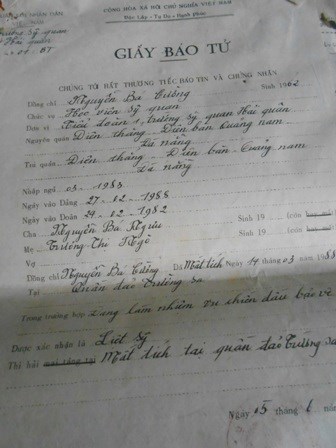 BỘI NHÂN DÂN
CỘNG HÒA XÃ HỘI CHỦ NGHĨA VIỆT NAM
Độc Lập - Tự Do - Hạnh Phúc
Sỹ quan
Hải quân
BT
GIẤY BÁO TỬ
CHÚNG TÔI RẤT THƯƠNG TIẾC BÁO TIN VÀ CHỨNG NHẬN
Đồng chí Nguyễn Bá Cường Sinh 1962
Chức vụ Học viên Sỹ quan
Đơn vị Tiểu đoàn 1, trường sỹ quan Hải quân
Nguyên quán Điện thắng - Điện bàn Quang nam
Đà nẵng
Trú quán Điện thắng - Điện bàn - Quang nam
Đà nẵng
Nhập ngũ 03 - 1983
Ngày vào Đảng 27 - 02 - 1988
Ngày vào Đoàn 24 - 02 - 1982
Cha Nguyễn Bá Sinh 19 (còn
Mẹ Trương Thị Sinh 19 (còn
Vợ Sinh 19
Đồng chí Nguyễn Bá Cường Đã Mất tích Ngày 14 tháng 03 198
Tại Quần đảo Trường Sa
Trong trường hợp Đang làm nhiệm vụ chiến đấu bảo vệ
Được xác nhận là Liệt sỹ
Thi hài mai táng tại Mất tích tại quần đảo Trường Sa
Ngày 05 tháng 6 năm